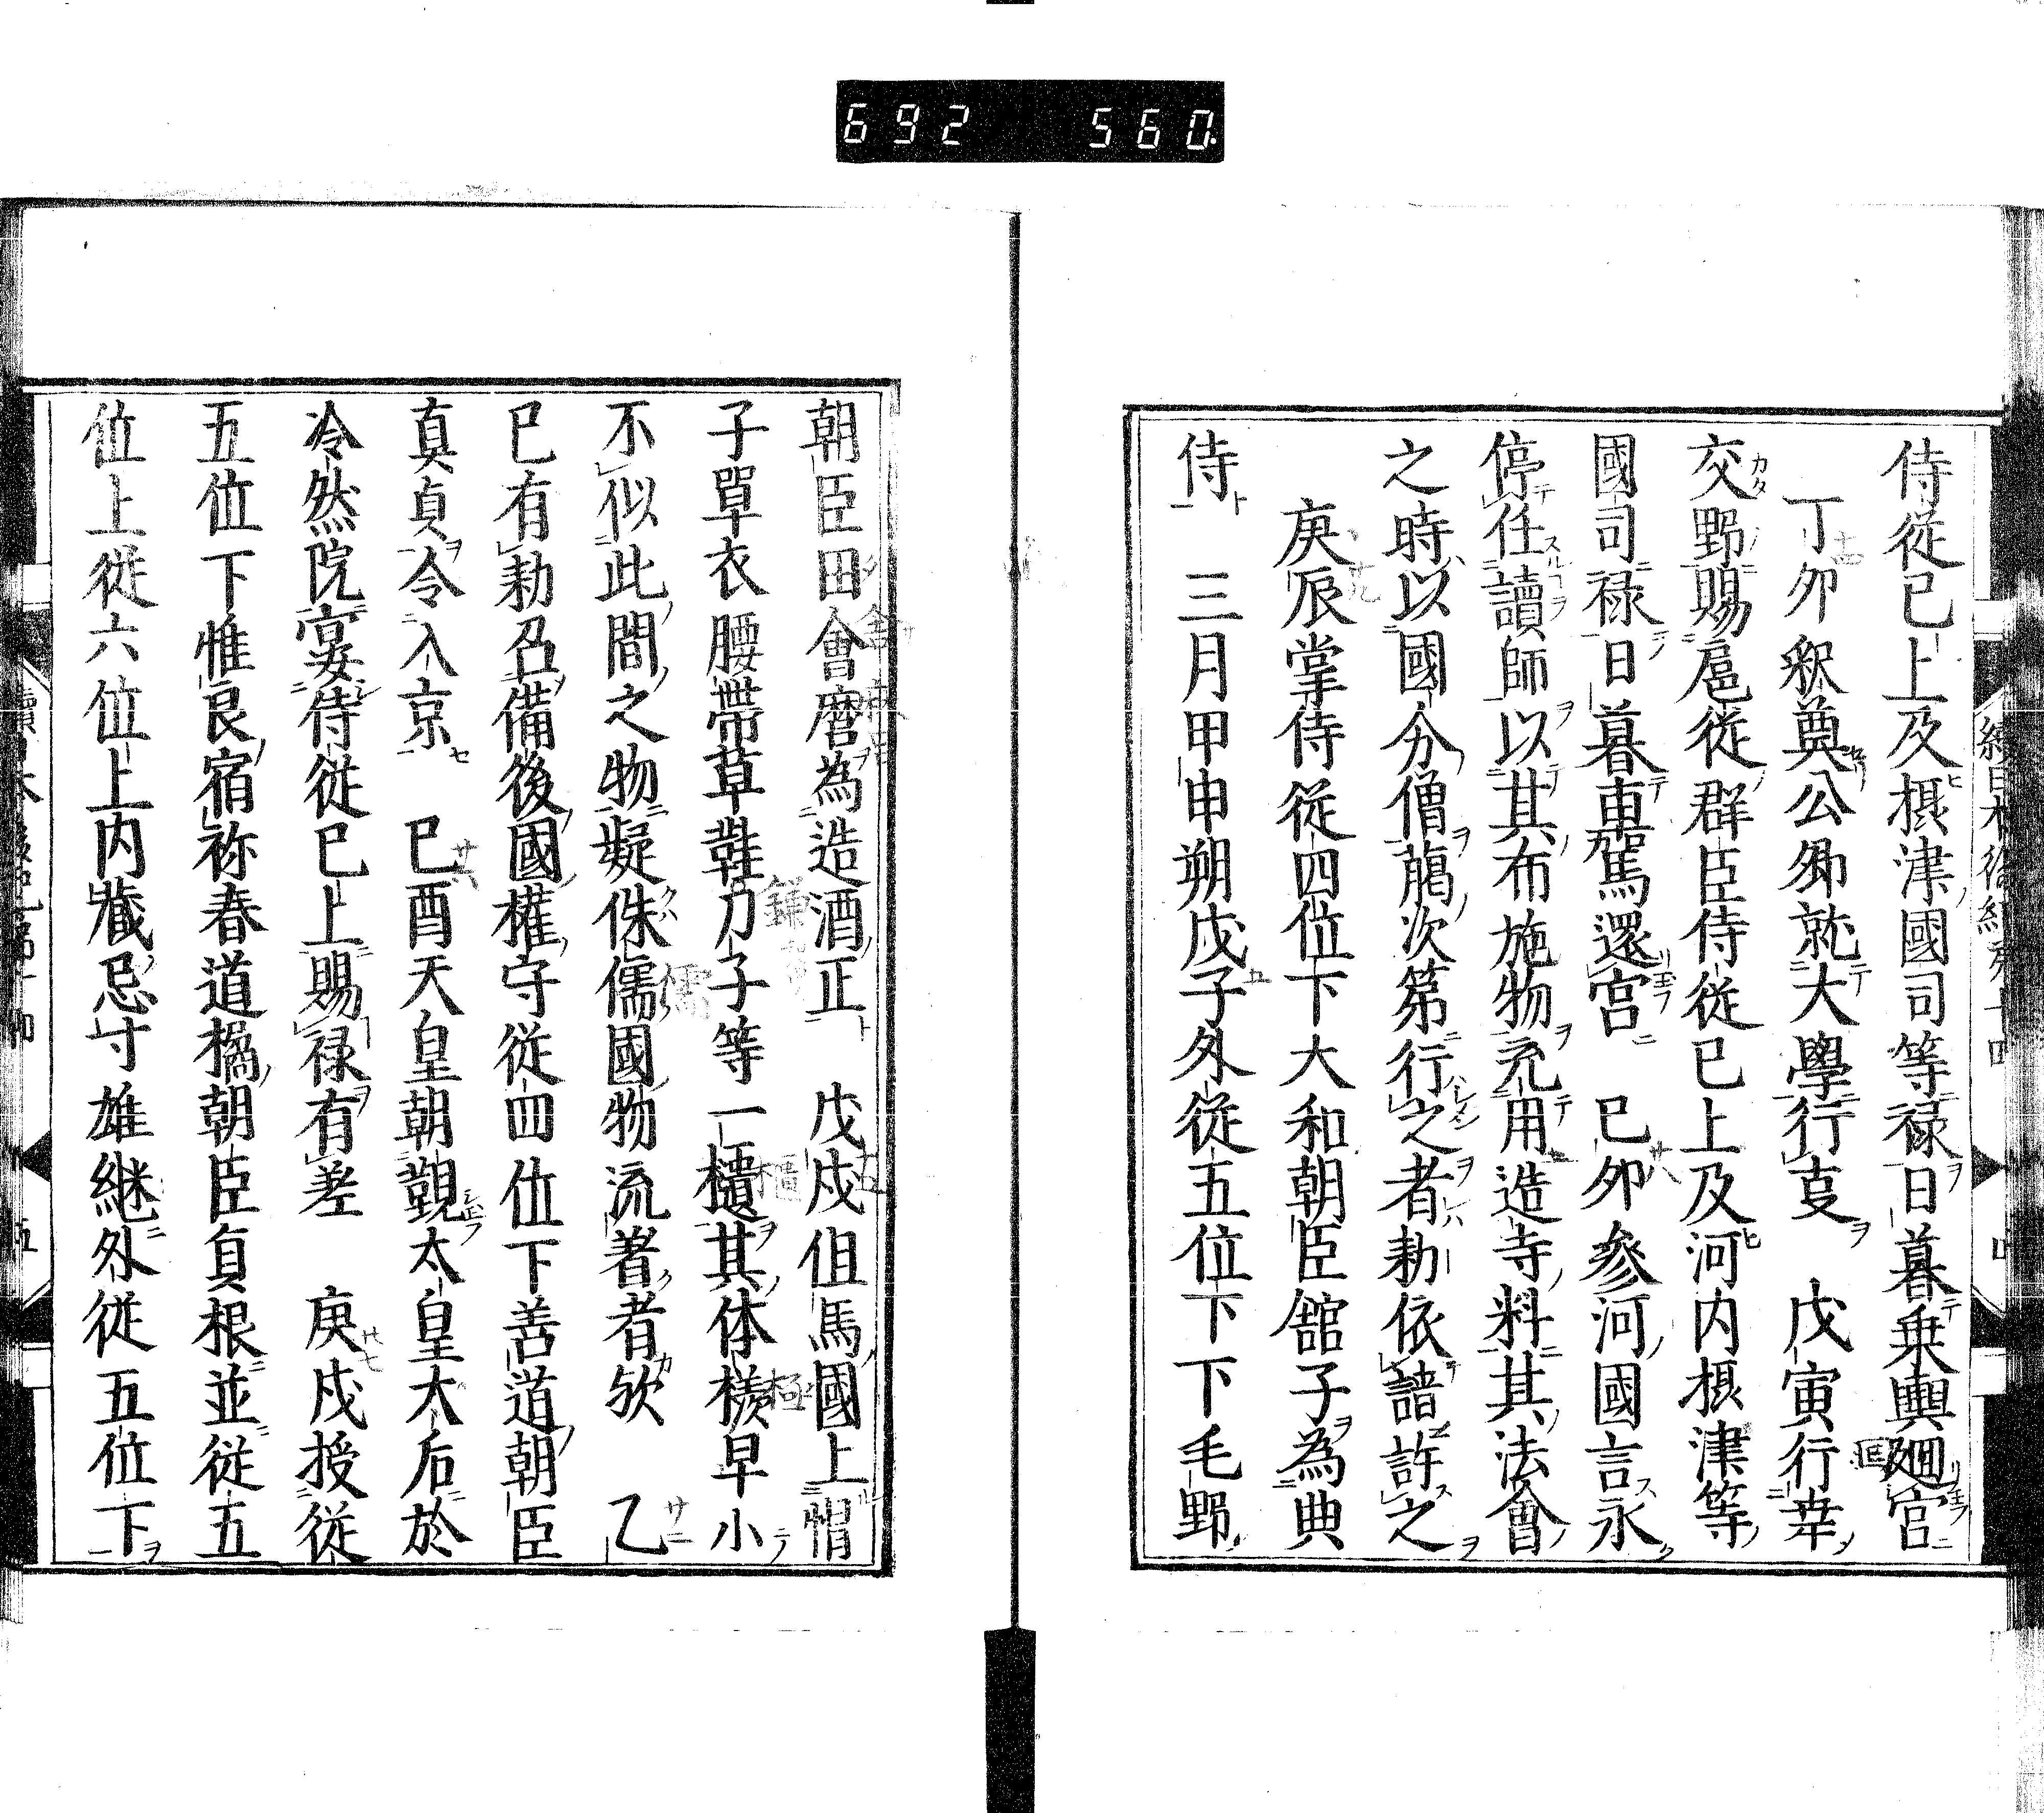 692 560
侍從已上及摂津國司等禄日暮乗輿廻宮
丁卯釈奠公卿就大學行㕝 戊寅行幸
交野賜扈從群臣侍從已上及河内摂津等
國司禄日暮車駕還宮 己卯參河國言永
停任讀師以其布施物充用造寺料其法會
之時以國分僧﨟次第行之者勅依請許之
庚辰掌侍從四位下大和朝臣舘子為典
侍 三月甲申朔戊子外從五位下下毛野
朝臣田會麿為造酒正 戊戌但馬國上㡌
子單衣腰帯草鞋刀子等一櫃其体樣早小
不似此間之物疑侏儒國物流著者欤 乙
巳有勅召備後國權守從四位下善道朝臣
真貞令入京 己酉天皇朝覲太皇大后於
冷然院宴侍從已上賜禄有差 庚戌授從
五位下惟良宿祢春道橘朝臣負根並從五
位上從六位上内蔵忌寸雄継外從五位下